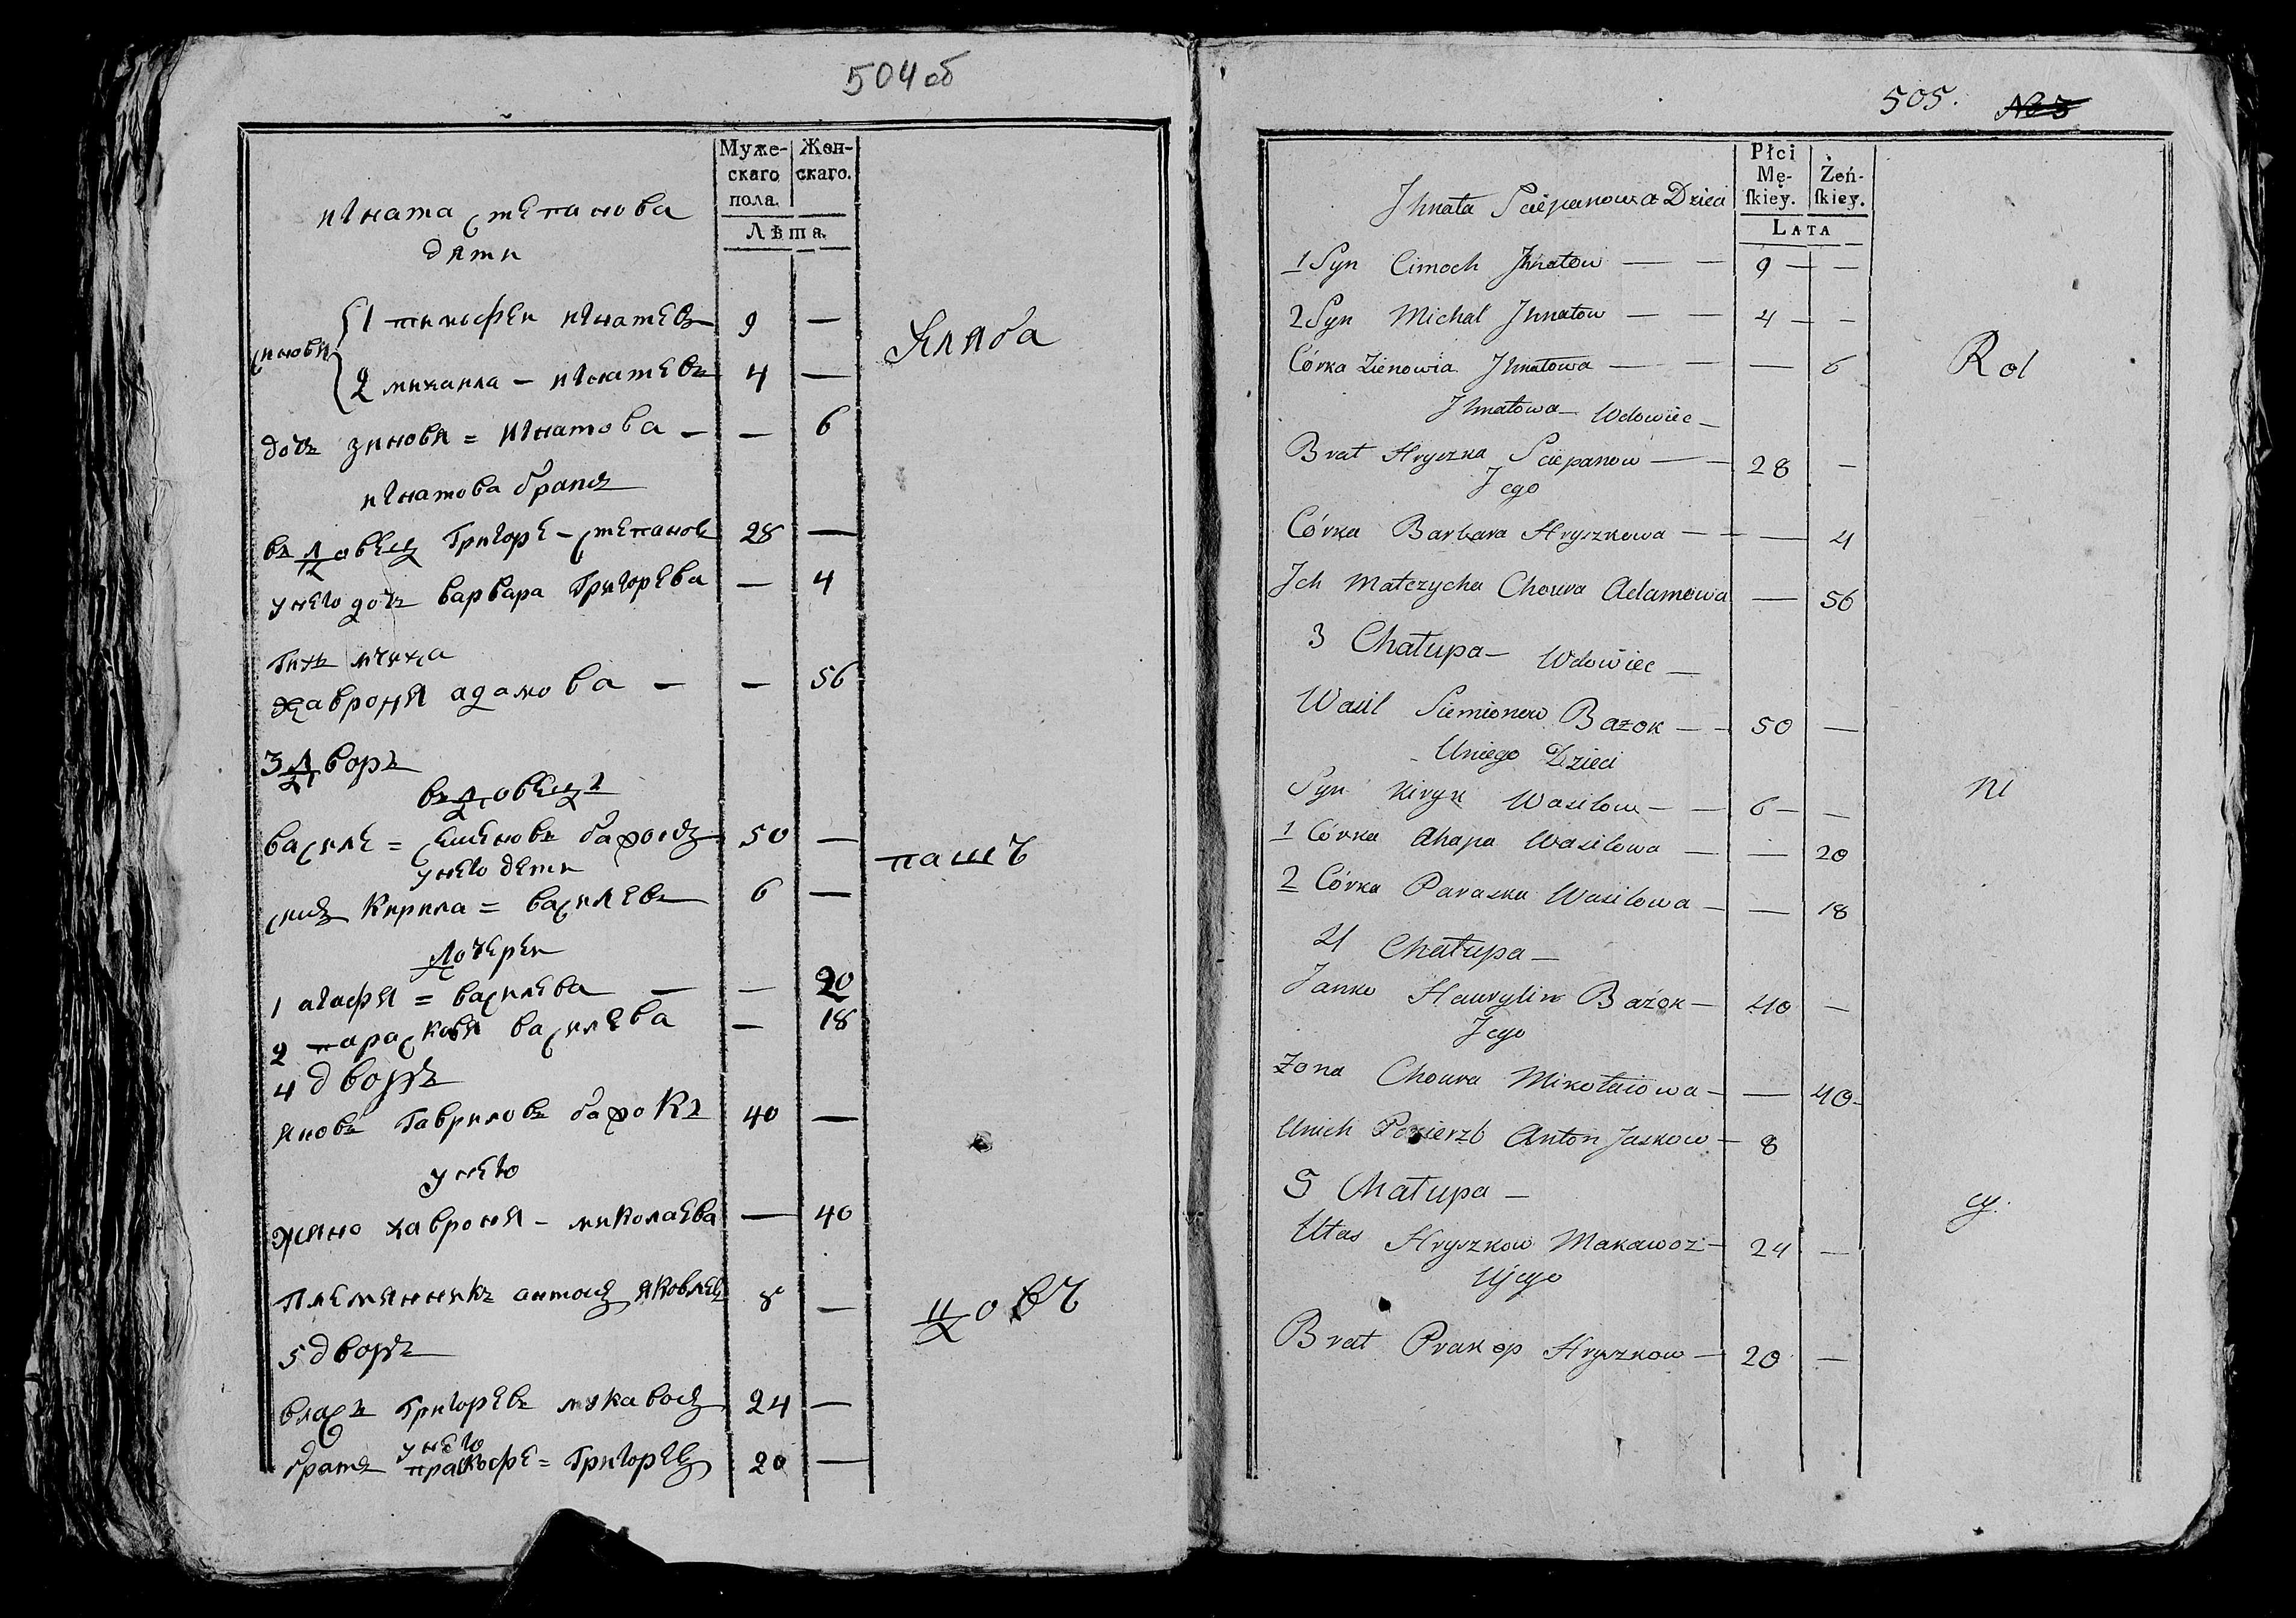 504 об
Муже-
скаго
пола.
Жен-
скаго.
Лѣта.
игната степанова
дѣти
синовя
1 тимофеи игнатевъ 9 —
2 михаила — игнатевъ 4 —
дочъ зиновя = игнатова — — 6
игнатова братъ
въдовецъ григоре — степановъ 28 —
унего дочъ варвара григорева — 4
хавроня адамова — — 56
3 дворъ
въдовецъ
василе = семеновъ бажокъ 50 —
унего дети
синъ кирила = василевъ 6 —
дочереи
1 агафя = василева — — 20
2 парасковя василева — 18
4 дворъ
яковъ гавриловъ бажокъ 40 —
унего
жина хавроня — миколаева — 40
племянникъ антонъ яковлевъ 8 —
5 дворъ
власъ григоревъ макавозъ 24 —
унего
братъ григоревъ 20 —
хляба
пашъ
цовъ
505. No 3
Płci
Mę-
ſkiey.
Żeń-
ſkiey.
LATA
Jhnata Sciepanowa Dzieci
1 Syn Cimoch Jhnatow — — 9 — —
2 Syn Michał Jhnatow — — 4 — —
Córka Zienowia Jhnatowa — — — 6
Jhnatowa Wdowiec —
Brat Hryszka Sciepanow — — 28 —
Jego
Córka Barbara Hryszkowa — — — 4
Jch Matczycha Chowra Adamowa — 56
3 Chałupa — Wdowiec —
Wasil Siemionow Bażok — — 50 —
Uniego Dzieci
Syn Kiryk Wasilow — — 6 — —
1 Córka Ahapa Wasilowa — — 20
2 Córka Paraska Wasilowa — — 18
4 Chałupa —
Janko Hawrylin Bażok — 40 —
Jego
Żona Chowra Mikołaiowa — — 40 —
Unich Pasierzb Anton Jaskow — 8
5 Chałupa —
Ułas Hryszkow Makawoz — 24 —
Ujego
Brat Prakop Hryszkow — 20 —
Rol
ni
cy.